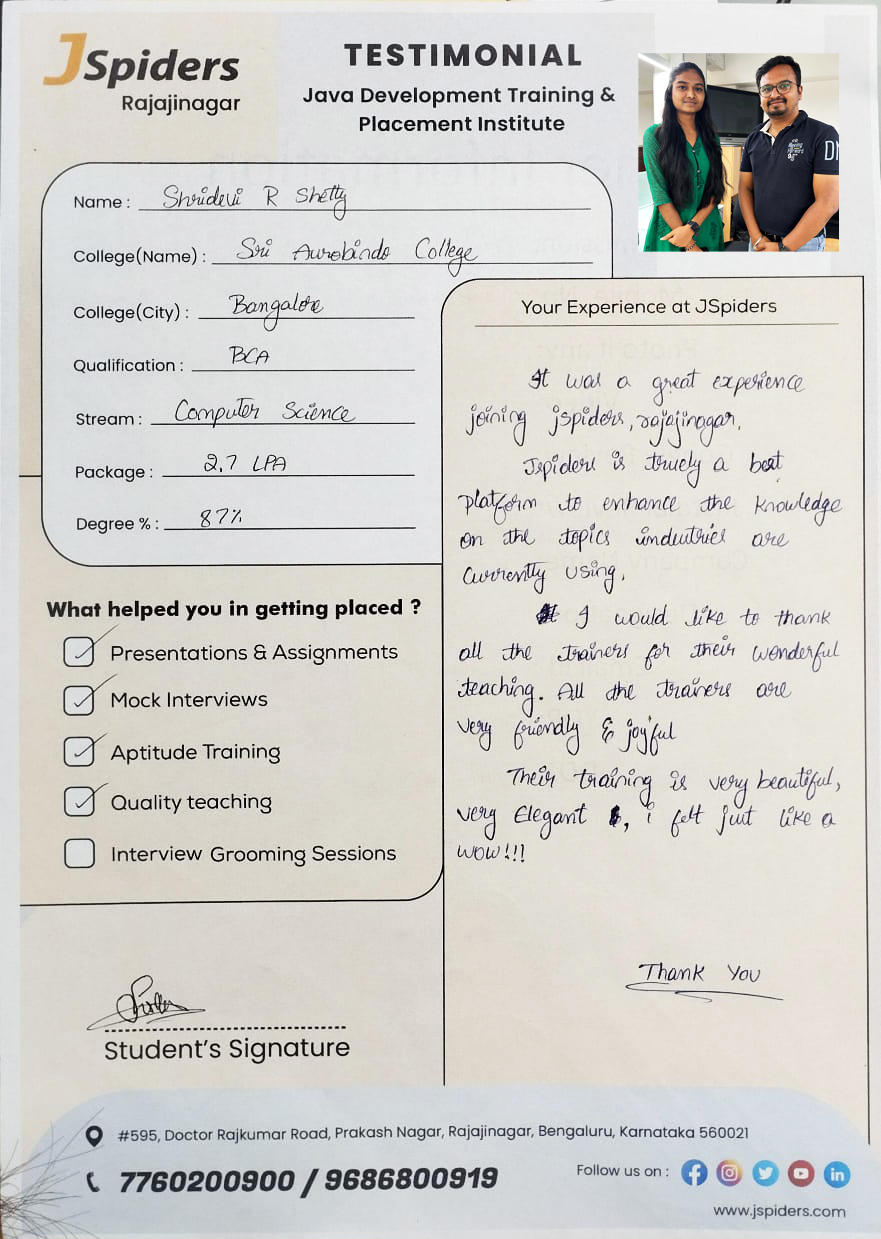 JSpiders
Rajajinagar
TESTIMONIAL
Java Development Training &
Placement Institute
Name : Shridevi R Shetty
College(Name) : Sri Aurobindo College
College(City) : Bangalore
Qualification : BCA
Stream : Computer Science
Package : 2.7 LPA
Degree % : 87%
What helped you in getting placed ?
Presentations & Assignments
Mock Interviews
Aptitude Training
Quality teaching
Interview Grooming Sessions
Student's Signature
Your Experience at JSpiders
It was a great experience
joining jspiders, rajajinagar.
Jspiders is truely a best
platform to enhance the knowledge
on the topics industries are
currently using.
I would like to thank
all the trainers for their wonderful
teaching. All the trainers are
very friendly & joyful
Their training is very beautiful,
very Elegant , i felt just like a
wow!!!
Thank You
#595, Doctor Rajkumar Road, Prakash Nagar, Rajajinagar, Bengaluru, Karnataka 560021
7760200900 / 9686800919
Follow us on :
www.jspiders.com